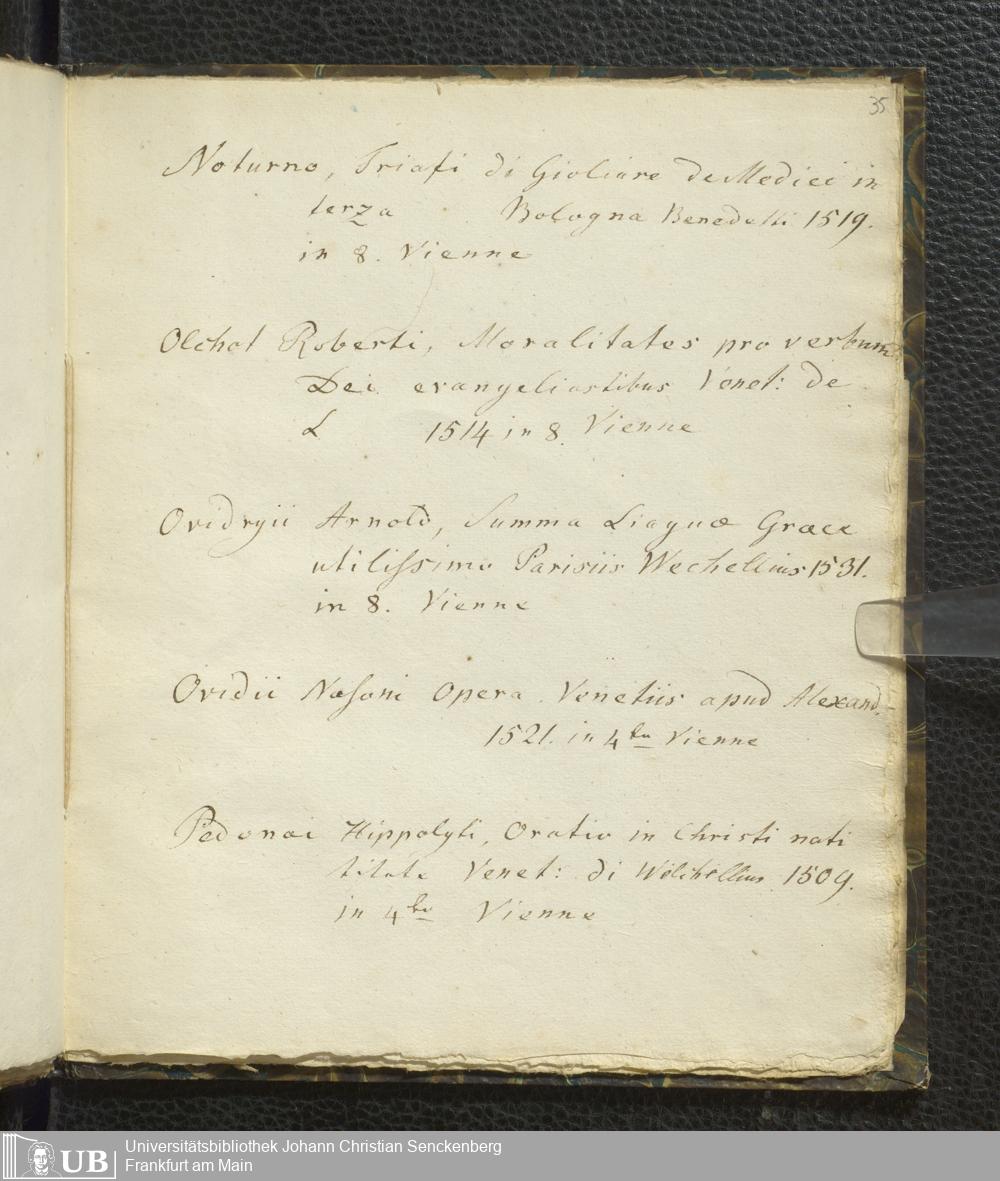 35
Noturno, Triafi di Gioliare de Medici in
terza Bologna Benedetti 1519.
in 8. Vienne
Olchot Roberti, Moralitates pro verbum
Dei evangeliastibus Venet: de
L 1514 in 8. Vienne
Ovidryii Arnold, Summa Liaguæ Græcæ
utilissima Parisiis Wechellius 1531.
in 8. Vienne
Ovidii Nasoni Opera. Venetiis apud Alexand.
1521. in 4to Vienne
Pedonai Hippolyti, Oratio in Christi nati
titate Venet: di Welchellius 1509.
in 4to Vienne
UB
Universitätsbibliothek Johann Christian Senckenberg
Frankfurt am Main